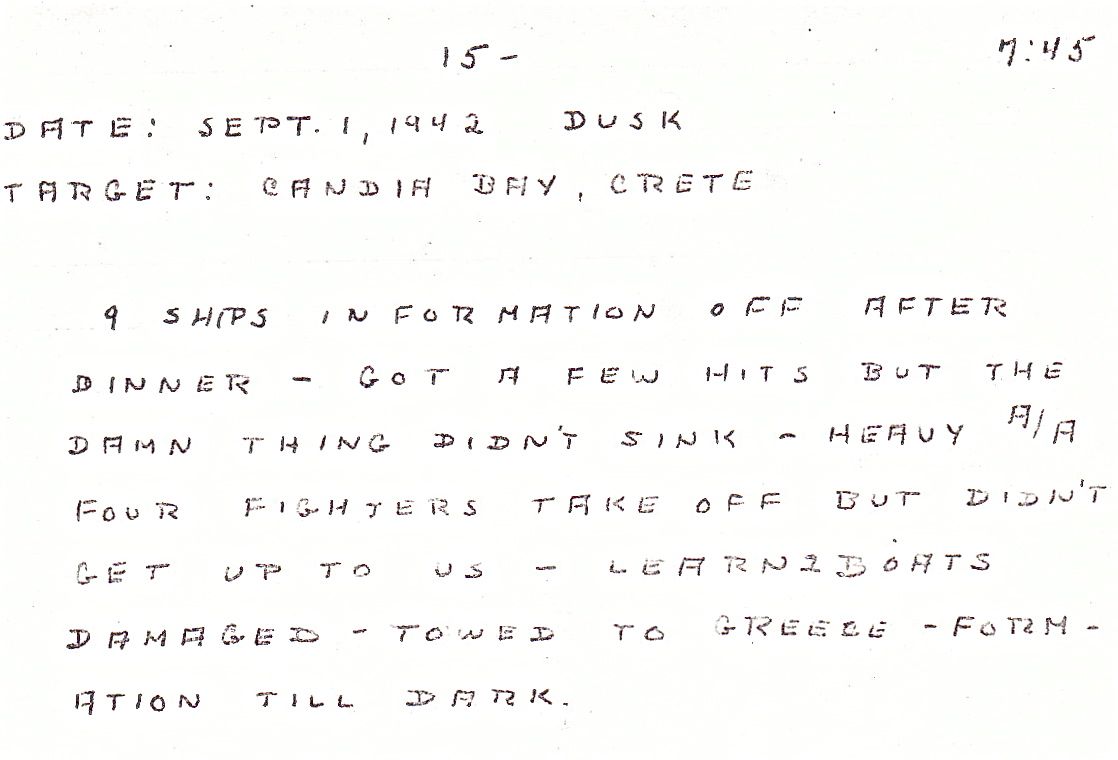 15- 7:45
DATE: SEPT. 1, 1942 DUSK
TARGET: CANDIA BAY, CRETE
9 SHIPS IN FORMATION OFF AFTER
DINNER - GOT A FEW HITS BUT THE
DAMN THING DIDN'T SINK - HEAVY A/A
FOUR FIGHTERS TAKE OFF BUT DIDN'T
GET UP TO US - LEARN 2 BOATS
DAMAGED - TOWED TO GREECE - FORM-
ATION TILL DARK.